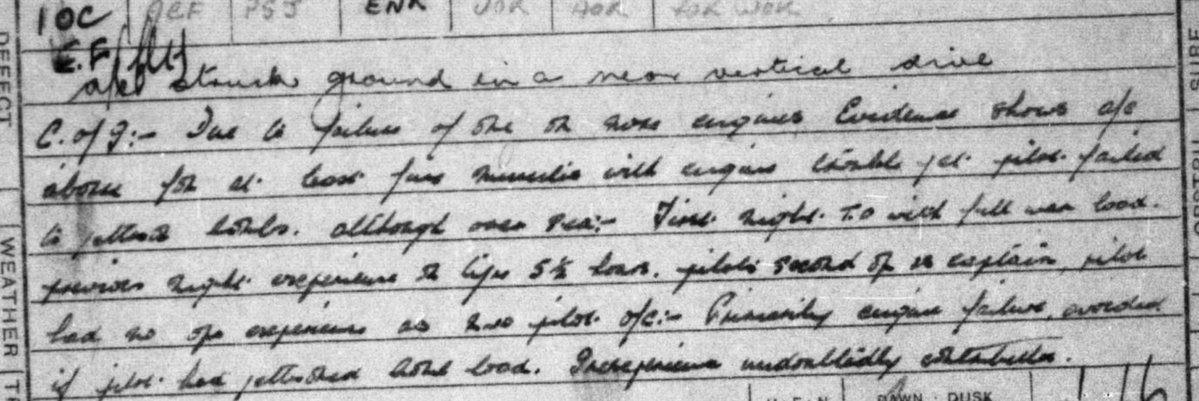 10C ACF PSJ ENR JOR AOR
E.F.
a/c struck ground in a near vertical drive
C. of I:- Due to failure of one or more engines Evidence shows a/c
above for at least five minutes with engine trouble yet pilot failed
to jettison bombs. although over sea:- First night T.O with full war load.
previous night experience on type 5½ hours. pilots second op as captain, pilot
had no ops experience as 2nd pilot. o/c:- Primarily engine failure, avoided
if pilot had jettisoned bomb load. Inexperience undoubtedly contributed.
DEFECT
WEATHER
DAWN DUSK